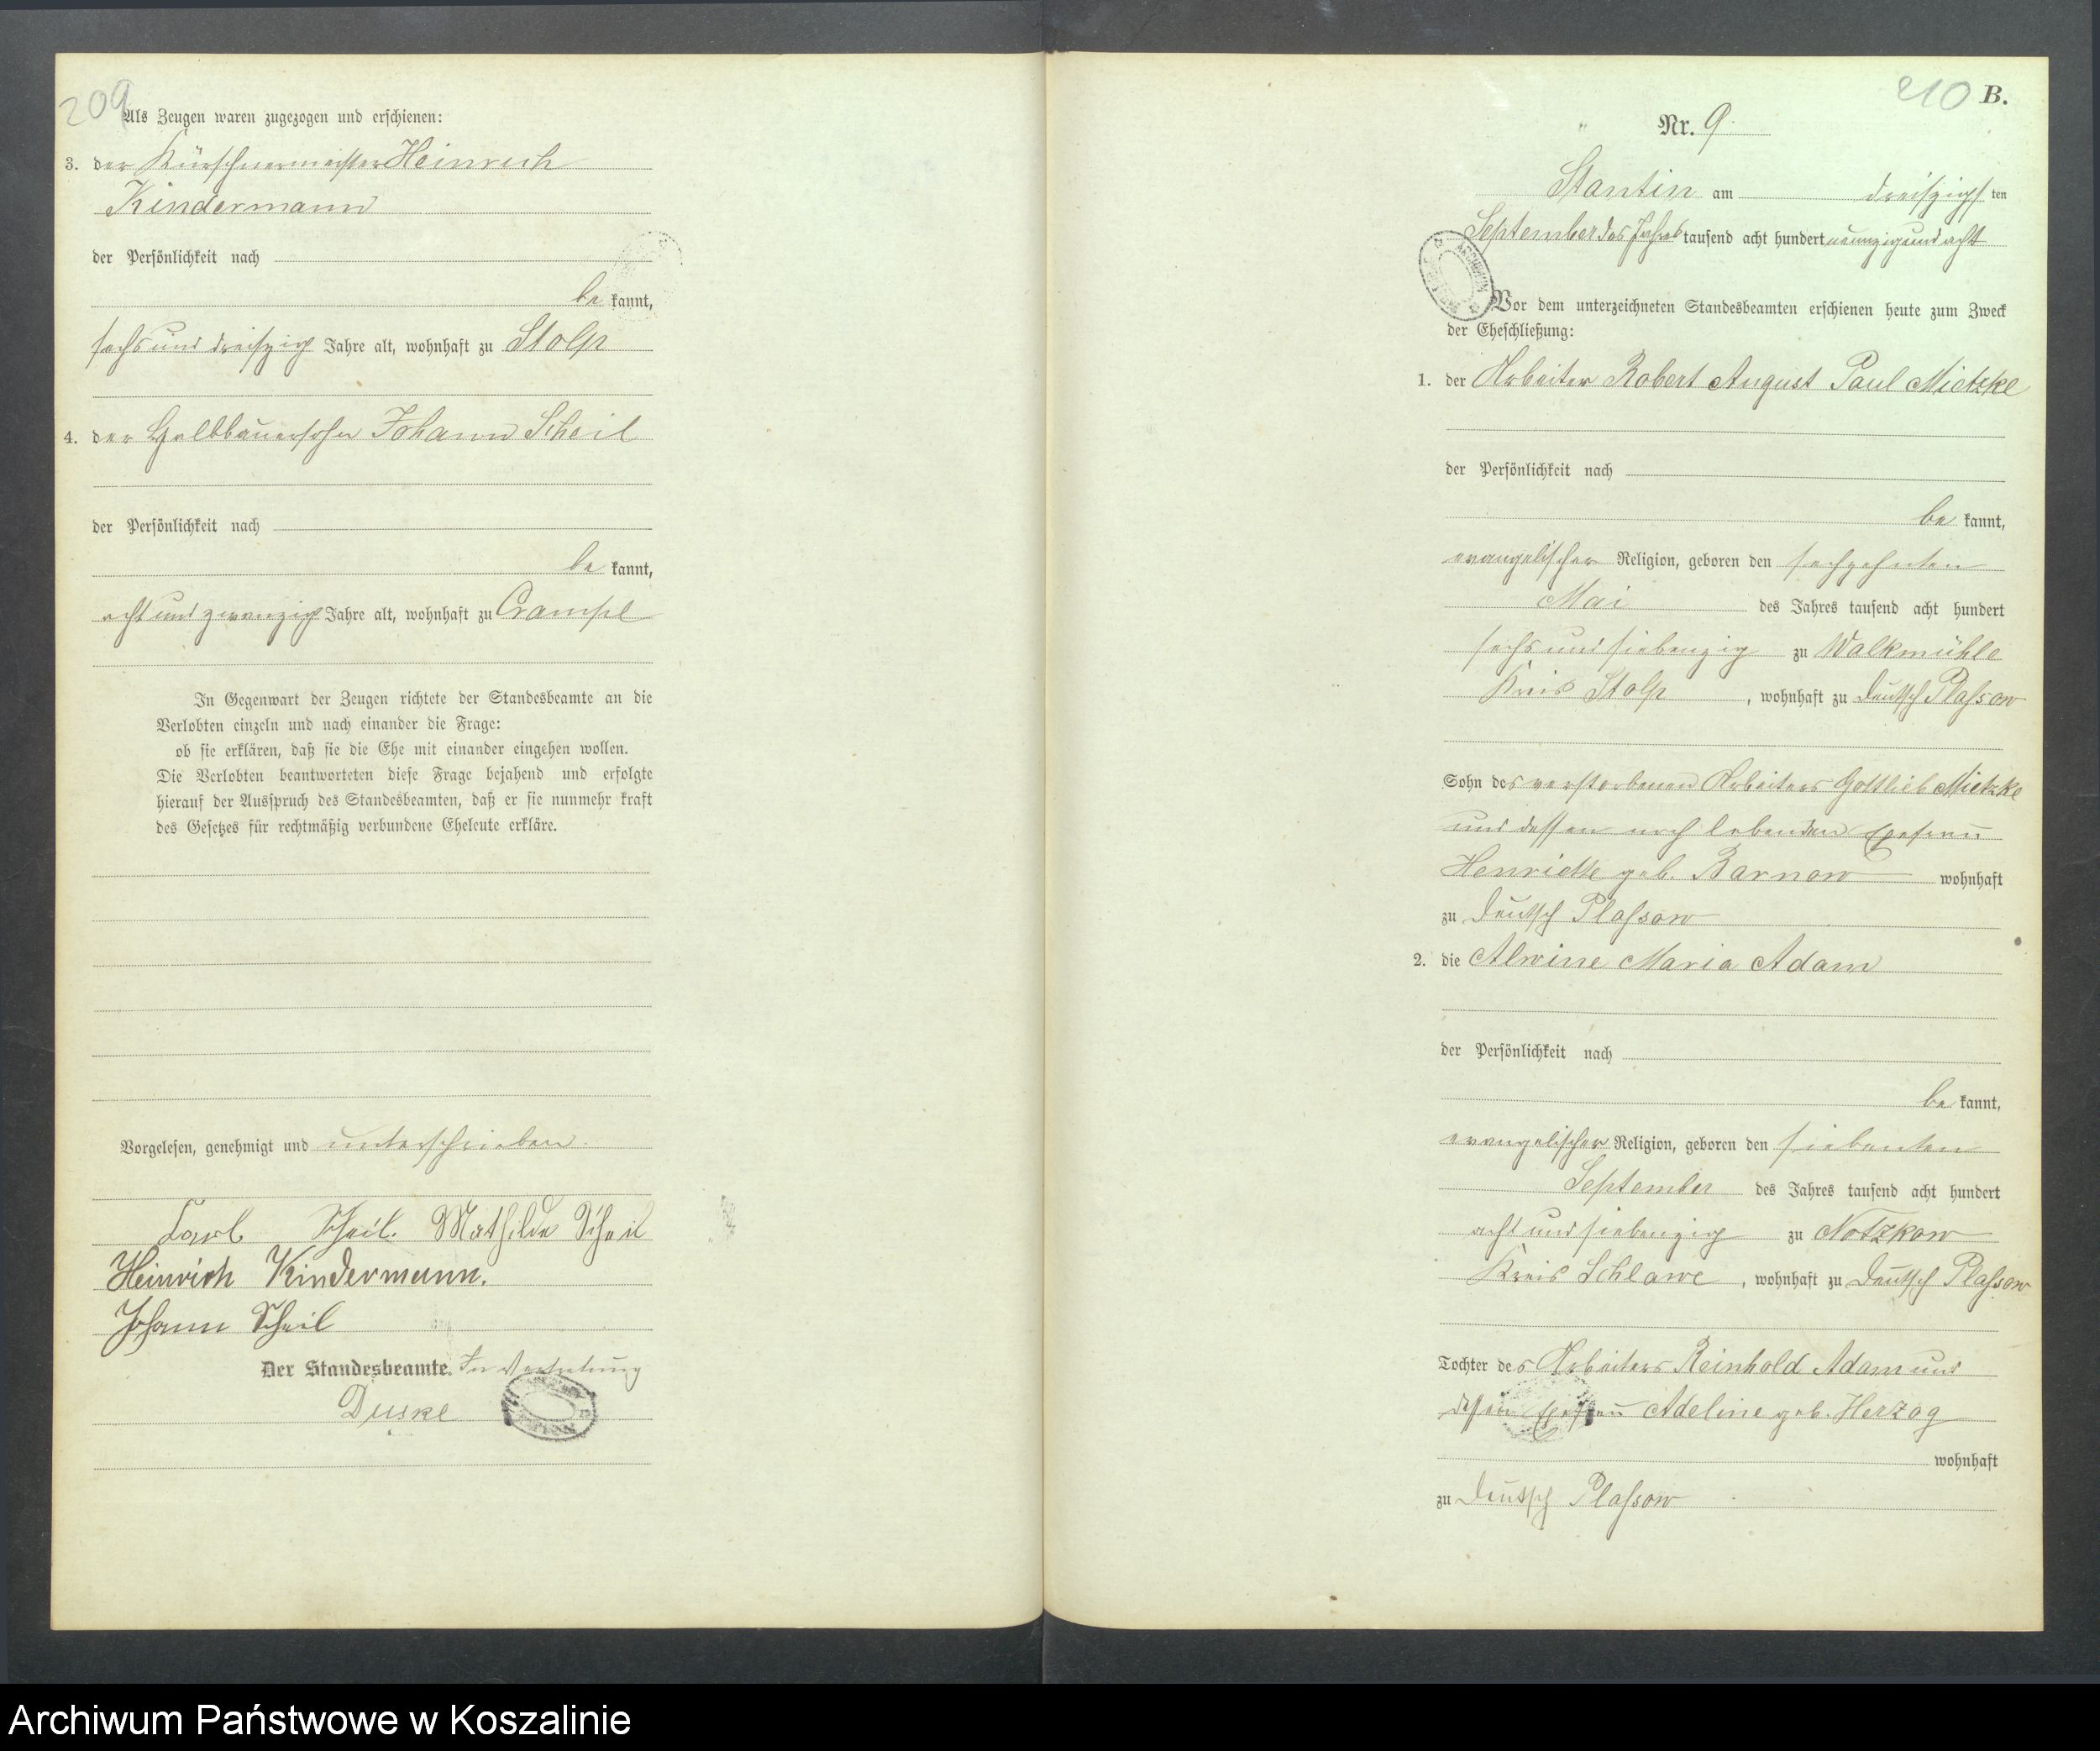 209
Als Zeugen waren zugezogen und erschienen:
3. der Kürschnermeister Heinrich
Kindermann
der Persönlichkeit nach
be kannt,
sechs und dreißig Jahre alt, wohnhaft zu Stolp
4. der Halbbauersohn Johann Scheil
der Persönlichkeit nach
be kannt,
acht und zwanzig Jahre alt, wohnhaft zu Crampe
In Gegenwart der Zeugen richtete der Standesbeamte an die
Verlobten einzeln und nach einander die Frage:
ob sie erklären, daß sie die Ehe mit einander eingehen wollen.
Die Verlobten beantworteten diese Frage bejahend und erfolgte
hierauf der Ausspruch des Standesbeamten, daß er sie nunmehr kraft
des Gesetzes für rechtmäßig verbundene Eheleute erkläre.
Vorgelesen, genehmigt und unterschrieben.
Carl Scheil. Mathilde Scheil
Heinrich Kindermann.
Johann Scheil
Der Standesbeamte. In Vertretung
Duske
210 B.
Nr. 9.
Stantin am dreißigsten
September des Jahres tausend acht hundert neunzig und acht
Vor dem unterzeichneten Standesbeamten erschienen heute zum Zweck
der Eheschließung:
1. der Arbeiter Robert August Paul Mietzke
der Persönlichkeit nach
be kannt,
evangelischer Religion, geboren den sechzehnten
Mai des Jahres tausend acht hundert
sechs und siebenzig zu Walkmühle
Kreis Stolp, wohnhaft zu Deutsch Plassow
Sohn des verstorbenen Arbeiters Gottlieb Mietzke
und dessen noch lebenden Ehefrau
Henriette geb. Barnow wohnhaft
zu Deutsch Plassow
2. die Alwine Maria Adam
der Persönlichkeit nach
be kannt,
evangelischer Religion, geboren den siebenten
September des Jahres tausend acht hundert
acht und siebenzig zu Notzkow
Kreis Schlawe, wohnhaft zu Deutsch Plassow
Tochter des Arbeiters Reinhold Adam und
dessen Ehefrau Adeline geb. Herzog
wohnhaft
zu Deutsch Plassow
Archiwum Państwowe w Koszalinie